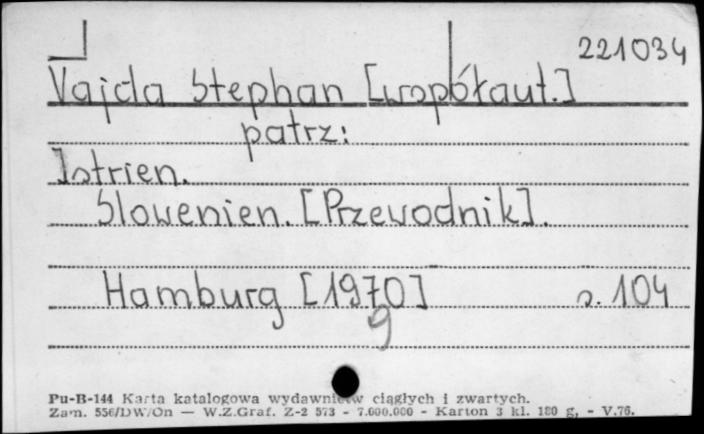 221034
Vajda Stephan [współaut.]
patrz:
Istrien.
Slowenien. [Przewodnik].
Hamburg [1970] s. 104
9
Pu-B-144 Karta katalogowa wydawnictw ciągłych i zwartych.
Zam. 556/DW/On — W.Z.Graf. Z-2 573 - 7.000.000 - Karton 3 kl. 180 g, - V.76.